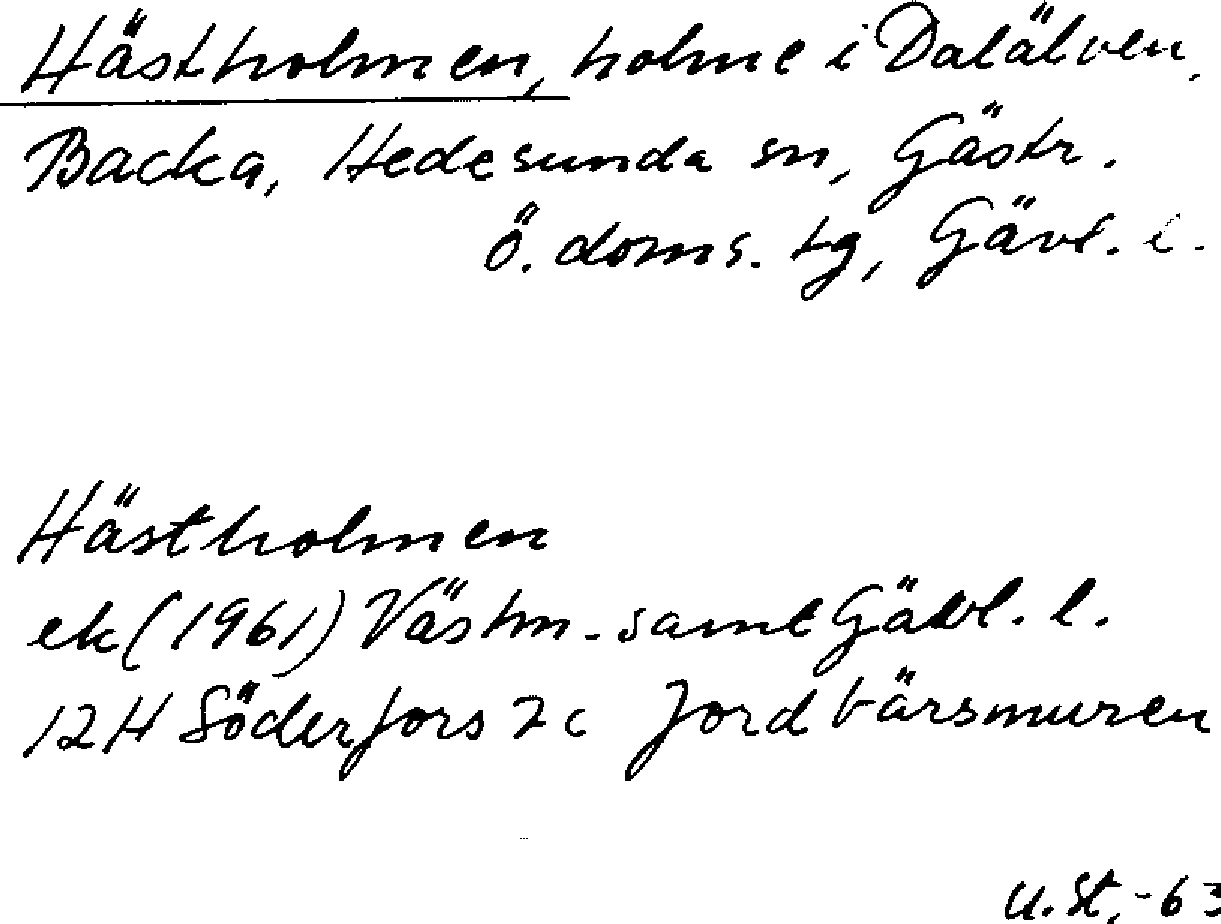 Hästholmen, holme i Dalälven,
Backa, Hedesunda sn, Gästr.
ö. doms. tg, Gävl. l.
Hästholmen
ek (1961) Västm. samt Gävl. l.
12H Söderfors 7c Jordbärsmuren
U. St, -63